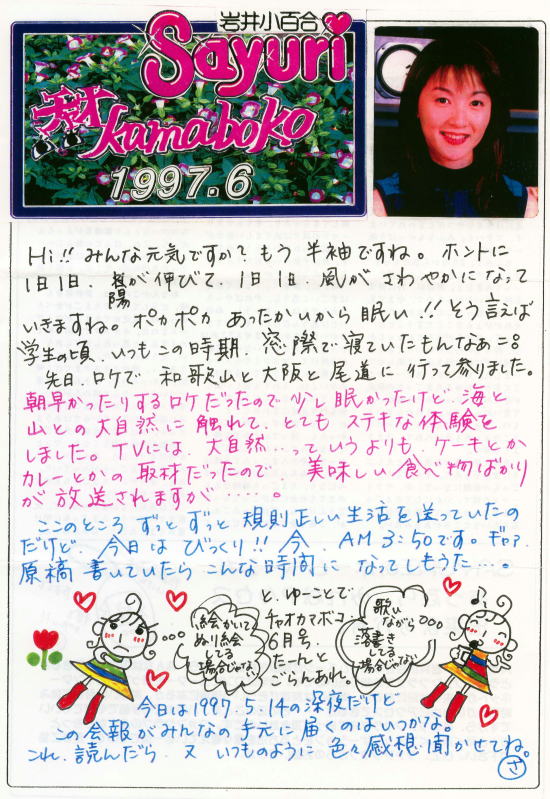 岩井小百合
Sayuri
チャオ
kamaboko
1997.6
Hi!! みんな元気ですか？もう半袖ですね。ホントに
1日1日、陽が伸びて、1日1日、風がさわやかになって
いきますね。ポカポカあったかいから眠い!! そう言えば
学生の頃、いつもこの時期、窓際で寝ていたもんなぁ
先日、ロケで和歌山と大阪と尾道に行って参りました。
朝早かったりするロケだったので少し眠かったけど、海と
山との大自然に触れて、とてもステキな体験を
しました。TVには、大自然…っていうよりも、ケーキとか
カレーとかの取材だったので、美味しい食べ物ばかり
が放送されますが……。
ここのところずっとずっと規則正しい生活を送っていたの
だけど、今日はびっくり!! 今、AM3:50です。ギャア
原稿書いていたらこんな時間になってしもうた…。
絵かいて
ぬり絵
してる
場合じゃない
と、ゆーことで
チャオカマボコ
6月号、
たーんと
ごらんあれ。
歌い
ながら
落書き
してる
場合じゃない
今日は1997.5.14の深夜だけど
この会報がみんなの手元に届くのはいつかな。
これ、読んだら、又いつものように色々感想聞かせてね。
さ